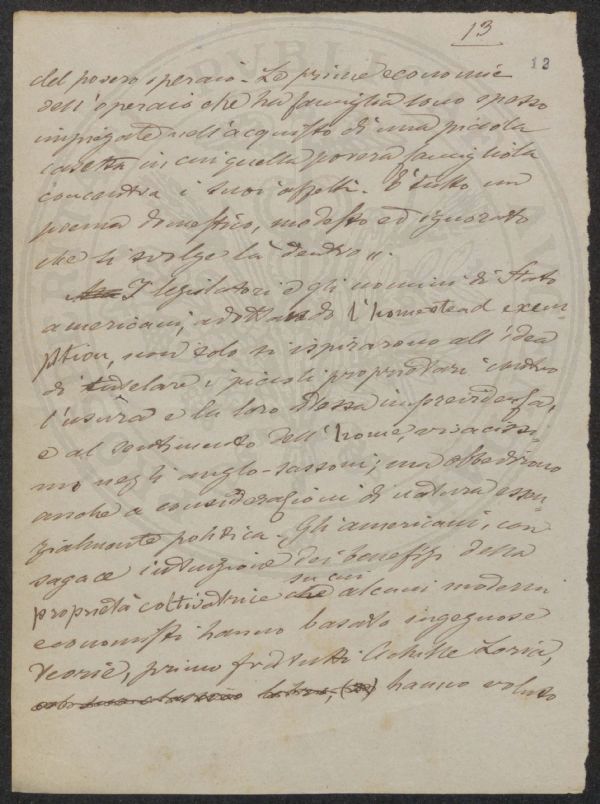 13
12
del povero operaio. Le prime economie
dell'operaio che ha famiglia sono spesso
impiegate nell'acquisto di una piccola
casetta in cui quella povera famigliola
concentra i suoi affetti. È tutto un
poema domestico, modesto ed ignorato
che si svolge là dentro".
I legislatori e gli uomini di Stato
americani, adottando l'homestead exem-
ption, non solo si ispirarono all'idea
di tutelare i piccoli proprietari contro
l'usura e la loro stessa imprevidenza,
e al sentimento dell'home, vivacissi-
mo negli anglo-sassoni; ma obbedirono
anche a considerazioni di natura essen-
zialmente politica. Gli americani, con
sagace intuizione dei benefizi della
su cui
proprietà coltivatrice che alcuni moderni
economisti hanno basato ingegnose
teorie, primo fra tutti Achille Loria,
hanno voluto